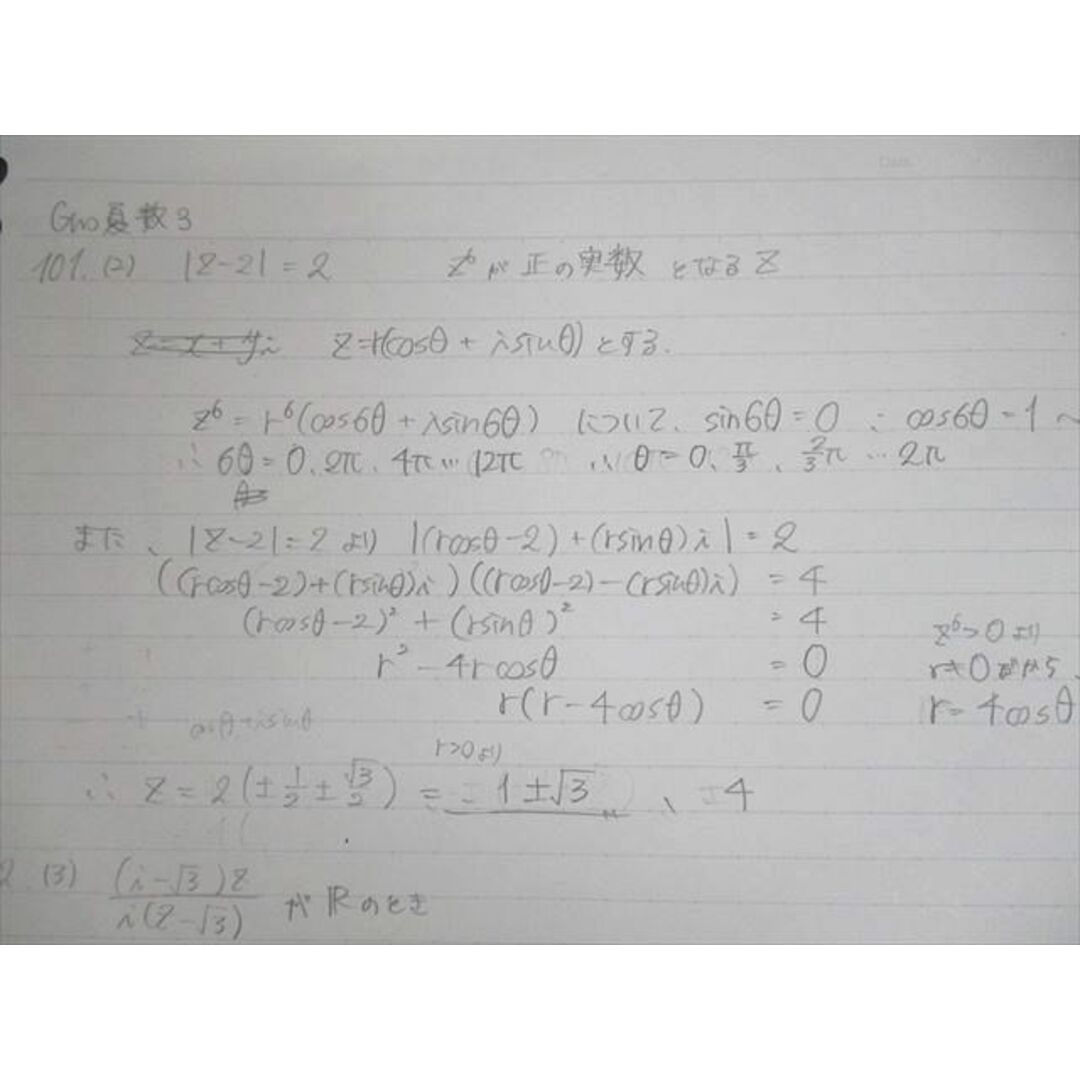 複素数3
101. (2) |z-2| = 2 z⁶が正の実数となるz
z = x + yi z=r(cosθ + isinθ)とする.
z⁶ = r⁶(cos6θ + isin6θ) について、sin6θ = 0 ; cos6θ = 1
∴ 6θ = 0、2π、4π … 12π ∴ θ = 0、π/3、2/3π … 2π
また、|z-2| = 2 より |(rcosθ-2)+(rsinθ)i| = 2
((rcosθ-2)+(rsinθ)i)((rcosθ-2)-(rsinθ)i) = 4
(rcosθ-2)² + (rsinθ)² = 4
z⁶>0より
r² - 4rcosθ = 0 r≠0だから、
r(r-4cosθ) = 0 r=4cosθ
cosθ+isinθ
r>0より
∴ z = 2(±1/2 ± √3/2) = 1±√3 、 4
(3) (i-√3)z / i(z-√3) が ℝ のとき
Date